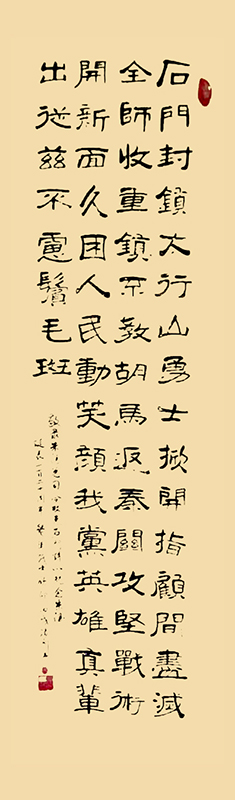 石門封鎖太行山勇士掀開指顧間盡滅
全師收重鎮不教胡馬返秦關攻堅戰術
開新面久困人民動笑顔我黨英雄真輩
出従茲不慮鬢毛斑